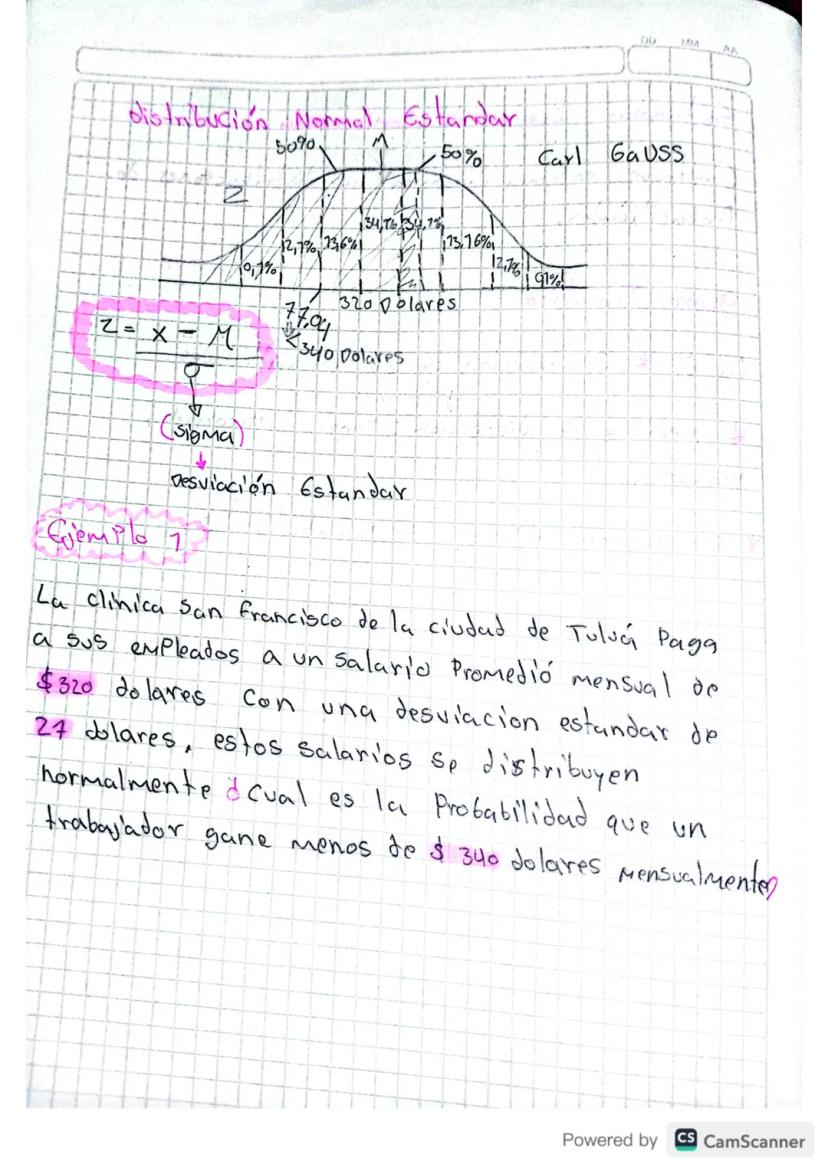 DD MM AA
distribución Normal Estandar
50% M 50% Carl GaUSS
Z
34,1% 34,1%
2,1% 13,6% 13,16% 2,1%
0,1% 0,1%
320 Dolares
77,04
<340 Dolares
Z = X - M
σ
(sigma)
Desviación Estandar
Ejemplo 1
La clinica San francisco de la ciudad de Tuluá Paga
a sus empleados a un salario Promedió mensual de
$320 dolares con una desviacion estandar de
27 dolares, estos salarios se distribuyen
normalmente ¿ Cual es la Probabilidad que un
trabajador gane menos de $ 340 dolares mensualmente?
Powered by CS CamScanner